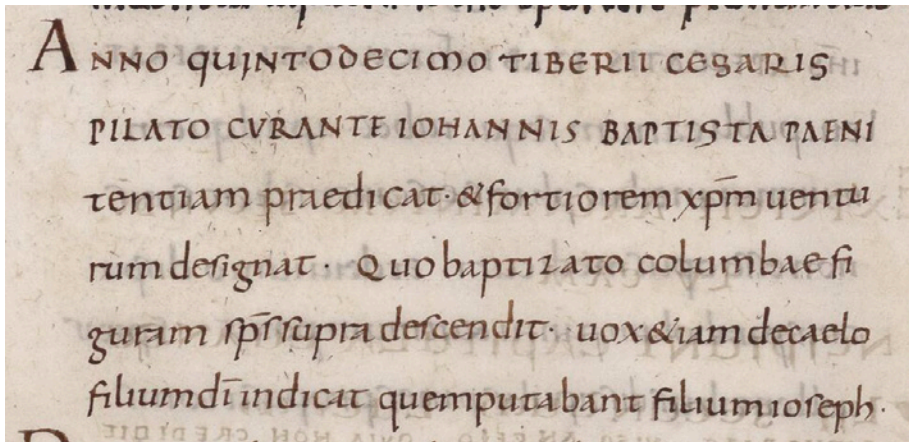 ANNO QUINTODECIMO TIBERII CESARIS
PILATO CVRANTE IOHANNIS BAPTISTA PAENI
tentiam praedicat · & fortiorem xp̄m uentu
rum designat · Quo baptizato columbae fi
guram sp̄s supra descendit · uox &iam decaelo
filium dī indicat quem putabant filium ioseph ·